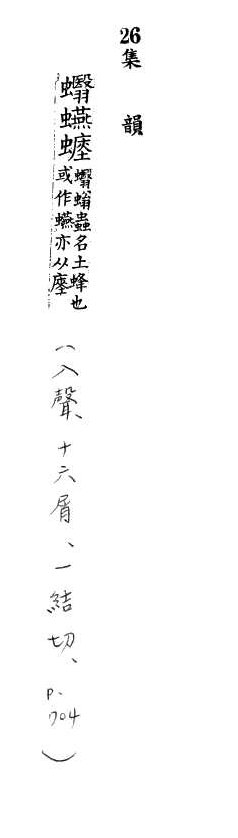 26集韻
蠮
蠮螉蟲名土蜂也
或作亦从
（入聲、十六屑、一結切、p.704）